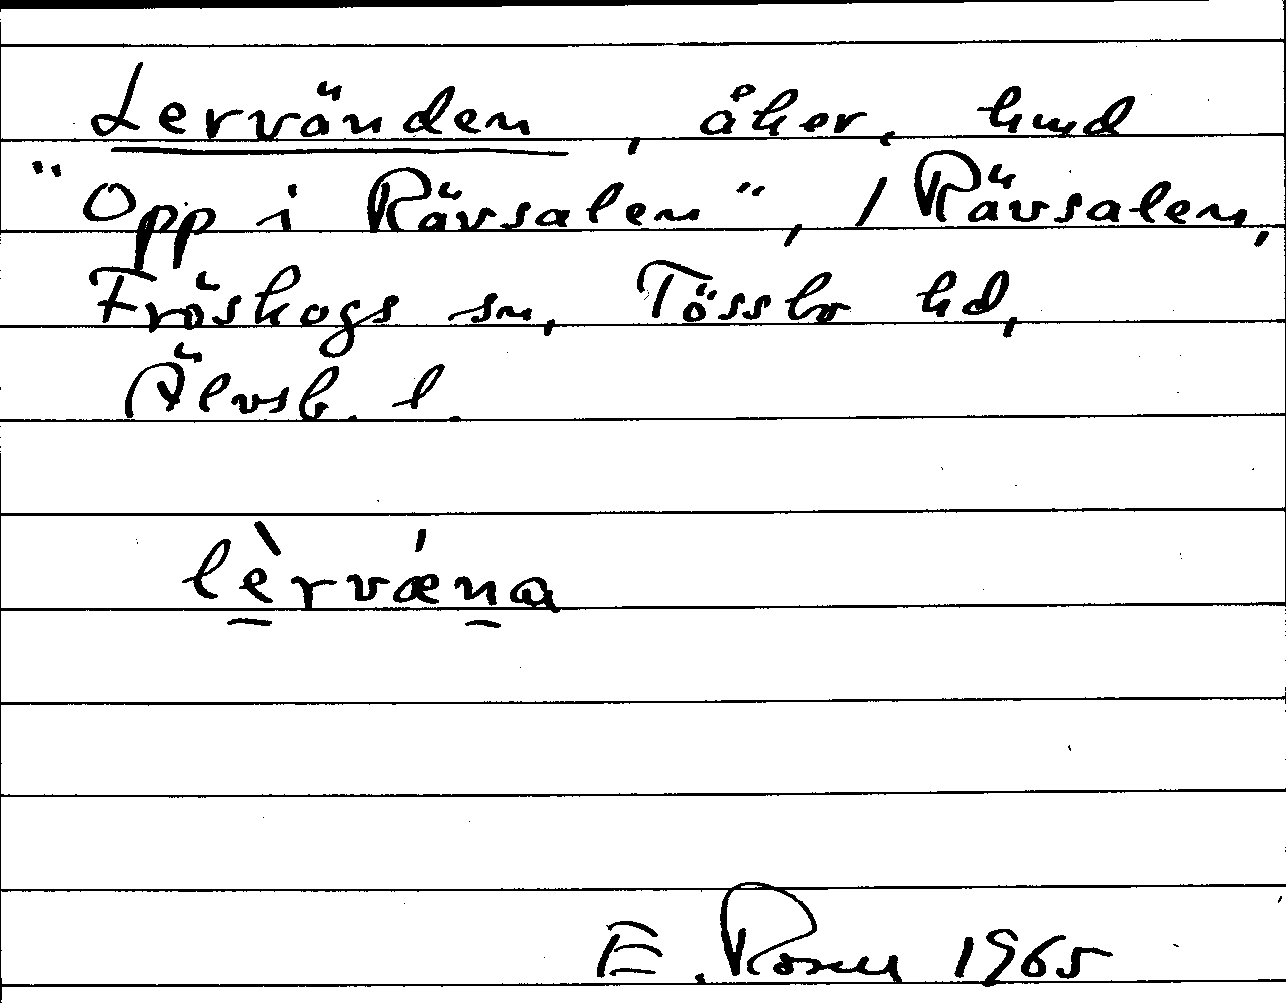 Lervänden, åker, hmd
"Opp i Rävsalen", 1 Rävsalen,
Fröskogs sn, Tössbo hd,
Älvsb. l.
lèrvǽna
E. Rosell 1965